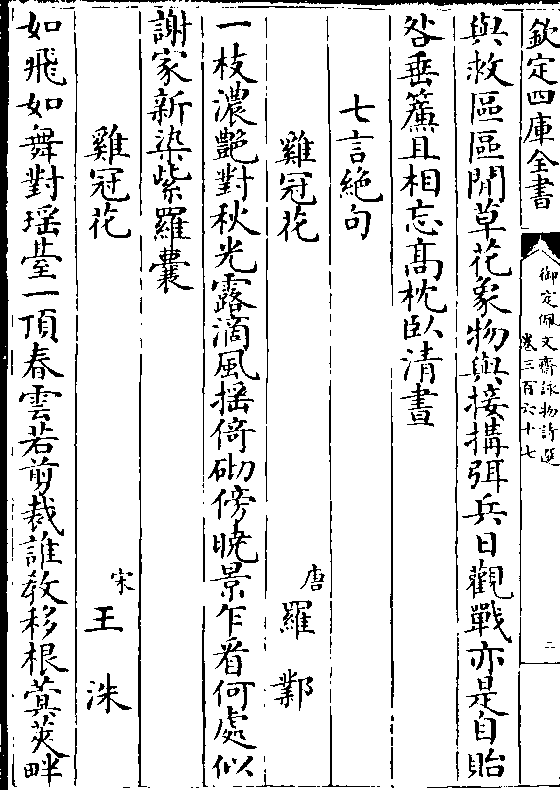 欽定四庫全書
御定佩文齋詠物詩選
卷三百六十七
二
與救區區閒草花象物與接搆弭兵日觀戰亦是自貽
咎垂簾且相忘髙枕臥清晝
七言絶句
雞冠花
唐
羅鄴
一枝濃艷對秋光露滴風揺倚砌傍曉景乍看何處似
謝家新染紫羅囊
雞冠花
宋
王洙
如飛如舞對瑶䑓一頂春雲若剪裁誰教移根蓂莢畔